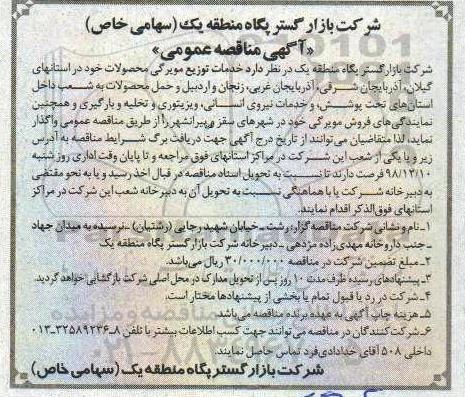 شرکت بازار گستر پگاه منطقه یک (سهامی خاص)
«آگهی مناقصه عمومی»
شرکت بازار گستر پگاه منطقه یک در نظر دارد خدمات توزیع مویرگی محصولات خود در استانهای
گیلان، آذربایجان شرقی، آذربایجان غربی، زنجان و اردبیل و حمل محصولات به شعب داخل
استان‌های تحت پوشش، و خدمات نیروی انسانی، ویزیتوری و تخلیه و بارگیری و همچنین
نمایندگی‌های فروش مویرگی خود در شهرهای سقز و پیرانشهر را از طریق مناقصه عمومی واگذار
نماید، لذا متقاضیان می‌توانند از تاریخ درج آگهی جهت دریافت برگ شرایط مناقصه به آدرس
زیر و یا یکی از شعب این شرکت در مراکز استانهای فوق مراجعه و تا پایان وقت اداری روز شنبه
۹۸/۱۲/۱۰ فرصت دارند تا نسبت به تحویل اسناد مناقصه در قبال اخذ رسید و یا به نحو مقتضی
به دبیرخانه شرکت یا با هماهنگی نسبت به تحویل آن به دبیرخانه شعب این شرکت در مراکز
استانهای فوق‌الذکر اقدام نمایند.
۱- نام و نشانی شرکت مناقصه گزار: رشت - خیابان شهید رجایی (رشتیان) - نرسیده به میدان جهاد
- جنب داروخانه مهدی‌زاده مژدهی - دبیرخانه شرکت بازار گستر پگاه منطقه یک
۲- مبلغ تضمین شرکت در مناقصه ۳۰/۰۰۰/۰۰۰ ریال می‌باشد.
۳- پیشنهادهای رسیده ظرف مدت ۱۰ روز پس از تحویل مدارک در محل اصلی شرکت بازگشایی خواهد گردید.
۴- شرکت در رد یا قبول تمام یا بخشی از پیشنهادها مختار است.
۵- هزینه چاپ آگهی به عهده برنده مناقصه می‌باشد.
۶- شرکت کنندگان در مناقصه می‌توانند جهت کسب اطلاعات بیشتر با تلفن ۸-۳۲۵۸۹۲۳۶-۰۱۳
داخلی ۵۰۸ آقای خدادادی‌فرد تماس حاصل نمایند.
شرکت بازار گستر پگاه منطقه یک (سهامی خاص)